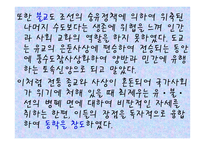 또한 불교도 조선의 숭유정책에 의하여 위축된
나머지 수도보다는 생존에 위협을 느껴 인간
과 사회 교화의 역할을 하지 못하였다. 도교
는 유교의 운동사상에 편승하여 전승되는 동안
에 풍수도참사상화하여 양반과 민간에 유행
하는 토속신앙으로 되고 말았다.
이처럼 전통 종교와 사상이 혼돈되어 국가사회
가 위기에 처해 있을 때 최제우는 유·불·
선의 병폐 면에 대하여 비판적인 자세를
취하는 한편, 이들의 장점을 독자적으로 융합
하여 동학을 창도하였다.